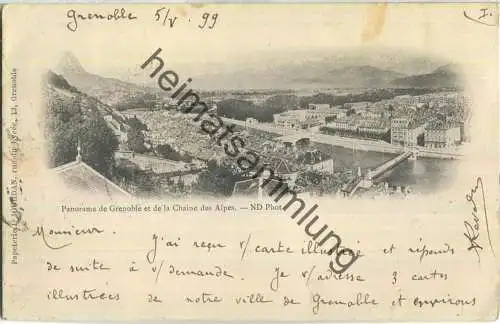 Grenoble 5/V 99
I.
Papeterie JOURDAN, rue du Lycée, 13, Grenoble
heimatsammlung.de
Panorama de Grenoble et de la Chaine des Alpes. — ND Phot.
Monsieur.
J'ai reçu v/carte illustrée et réponds
de suite à v/demande. Je v/adresse 3 cartes
illustrées de notre ville de Grenoble et environs